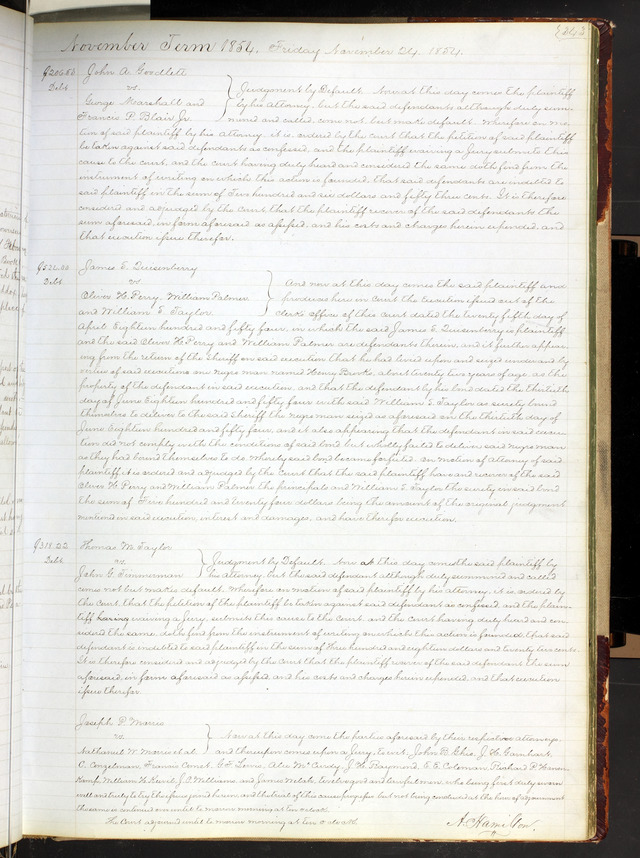 November Term 1854. Friday November 24. 1854.
343
$206.53 John A. Goodlett
Debt vs. Judgment by Default. Now at this day comes the plaintiff
George Marshall and by his attorney, but the said defendants although duly sum
Francis P. Blair Jr. moned and called, come not, but make default. Wherefore on mo
tion of said plaintiff by his attorney, it is ordered by the court that the petition of said plaintiff
be taken against said defendants as confessed, and the plaintiff waiving a Jury submits this
cause to the court, and the court having duly heard and considered the same doth find from the
instrument of writing on which this action is founded, that said defendants are indebted to
said plaintiff in the sum of Two hundred and six dollars and fifty three cents. It is therefore
considered and adjudged by the Court, that the plaintiff recover of the said defendants the
sum aforesaid, in form aforesaid as assessed, and his costs and charges herein expended, and
that execution issue therefor.
James E. Quesenberry
Debt vs. And now at this day comes the said plaintiff and
Oliver H. Perry, William Palmer produces here in Court the Execution issued out of the
and William E. Taylor clerks office of this court dated the twenty fifth day of
April Eighteen hundred and fifty four, in which the said James E. Quesenberry is plaintiff
and the said Oliver H. Perry and William Palmer are defendants therein, and it further appear
ing from the return of the Sheriff on said execution that he had levied upon and seized under and by
virtue of said execution one negro man named Henry Banks about twenty two years of age as the
property of the defendant in said execution, and that the defendant by his bond dated the thirtieth
day of June Eighteen hundred and fifty four with said William E. Taylor as security bound
themselves to deliver to the said Sheriff the negro man seized as aforesaid on the thirtieth day of
June Eighteen hundred and fifty four, and it also appearing that the defendant in said execu
tion did not comply with the conditions of said bond but wholly failed to deliver said negro man
as they had bound themselves to do whereby said bond became forfeited. On motion of attorney of said
plaintiff it is ordered and adjudged by the court that the said plaintiff have and recover of the said
Oliver H. Perry and William Palmer the principals and William E. Taylor the security in said bond
the sum of Five hundred and twenty four dollars being the amount of the original judgment
mentioned in said execution, interest and damages, and have therefor execution.
$318.22 Thomas M. Taylor
Debt vs. Judgment by Default. Now at this day comes the said plaintiff by
John G. Timmerman his attorney, but the said defendant although duly summoned and called
comes not but makes default. Wherefore on motion of said plaintiff by his attorney, it is ordered by
the court that the petition of the plaintiff be taken against said defendant as confessed, and the plain-
tiff having waiving a Jury, submits this cause to the Court, and the court having duly heard and con
sidered the same, doth find from the instrument of writing on which this action is founded, that said
defendant is indebted to said plaintiff in the sum of Three hundred and eighteen dollars and twenty two cents.
It is therefore considered and adjudged by the Court that the plaintiff recover of the said defendant the sum
aforesaid, in form aforesaid as assessed, and his costs and charges herein expended, and that execution
issue therefor.
Joseph P. Morris
vs. Now at this day come the parties aforesaid by their respective attorneys,
Nathaniel W. Morris et al and thereupon comes upon a Jury, to wit, John B. Ghio, J. H. Gambart,
C. Conzelman, Francis Comet, C. F. Lewis, Alex McCurdy, J. H. Raymond, E. E. Coleman, Richard P.
Kamp, William H. Kevil, J. P. Williams, and James Walsh, twelve good and lawful men who being first duly sworn
well and truly to try the issue joined herein, and the trial of this cause progresses but not being concluded at the hour of adjournment
the same is continued over until to morrow morning at ten o'clock.
The Court adjourned until to morrow morning at ten o'clock.
A. Hamilton.